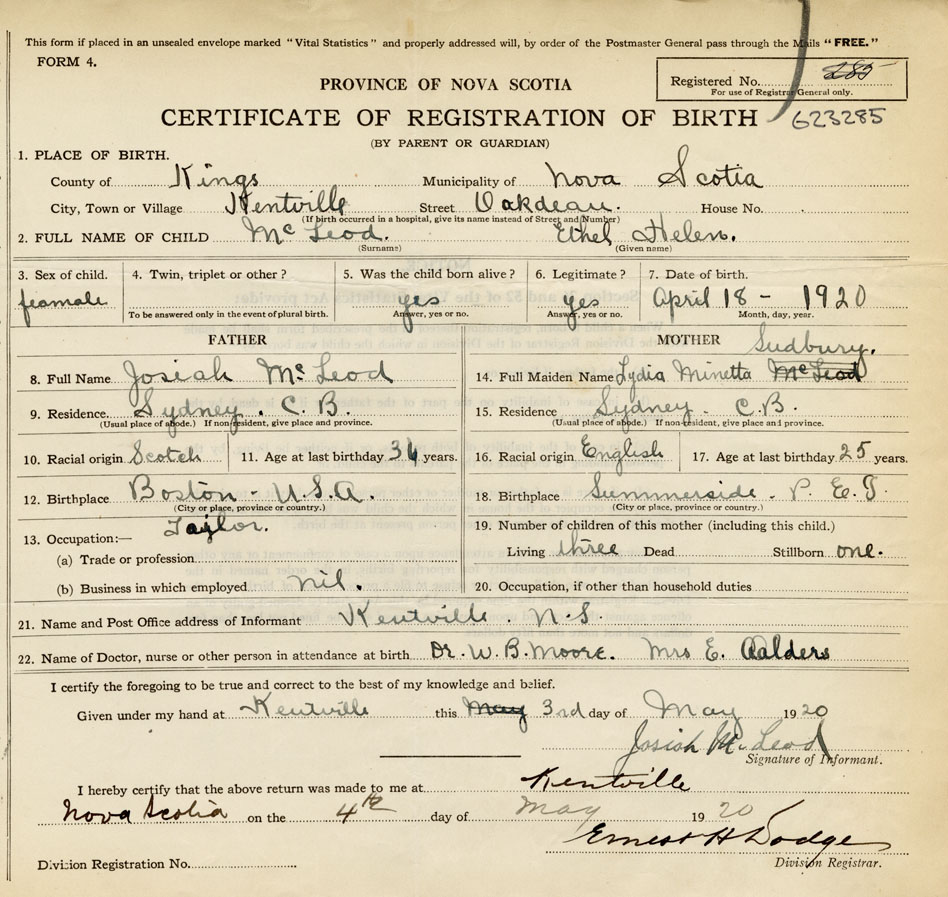 This form if placed in an unsealed envelope marked "Vital Statistics" and properly addressed will, by order of the Postmaster General pass through the Mails "FREE."
FORM 4.
PROVINCE OF NOVA SCOTIA
Registered No. 285
For use of Registrar General only.
CERTIFICATE OF REGISTRATION OF BIRTH
623285
(BY PARENT OR GUARDIAN)
1. PLACE OF BIRTH.
County of Kings Municipality of Nova Scotia
City, Town or Village Kentville Street Oakdean. House No.
(If birth occurred in a hospital, give its name instead of Street and Number)
2. FULL NAME OF CHILD McLeod. Ethel Helen.
(Surname) (Given name)
3. Sex of child. 4. Twin, triplet or other? 5. Was the child born alive? 6. Legitimate? 7. Date of birth.
feamale yes yes April 18 - 1920
To be answered only in the event of plural birth. Answer, yes or no. Answer, yes or no. Month, day, year.
FATHER
8. Full Name Josiah McLeod
9. Residence. Sydney. C.B.
(Usual place of abode.) If non-resident, give place and province.
10. Racial origin Scotch 11. Age at last birthday 34 years.
12. Birthplace Boston - U.S.A.
(City or place, province or country.)
Taylor.
13. Occupation:—
(a) Trade or profession
(b) Business in which employed nil.
MOTHER
Sudbury.
14. Full Maiden Name Lydia Minetta McLeod
15. Residence Sydney - C.B.
(Usual place of abode.) If non-resident, give place and province.
16. Racial origin English 17. Age at last birthday 25 years.
18. Birthplace Summerside. P. E. I
(City or place, province or country.)
19. Number of children of this mother (including this child.)
Living three Dead Stillborn one.
20. Occupation, if other than household duties
21. Name and Post Office address of Informant Kentville. N.S.
22. Name of Doctor, nurse or other person in attendance at birth Dr. W. B. Moore. Mrs E. Aalders
I certify the foregoing to be true and correct to the best of my knowledge and belief.
Given under my hand at Kentville this May 3rd day of May 1920
Josiah McLeod
Signature of Informant.
I hereby certify that the above return was made to me at Kentville
Nova Scotia on the 4th day of May 1920
Ernest H Dodge
Division Registration No. Division Registrar.